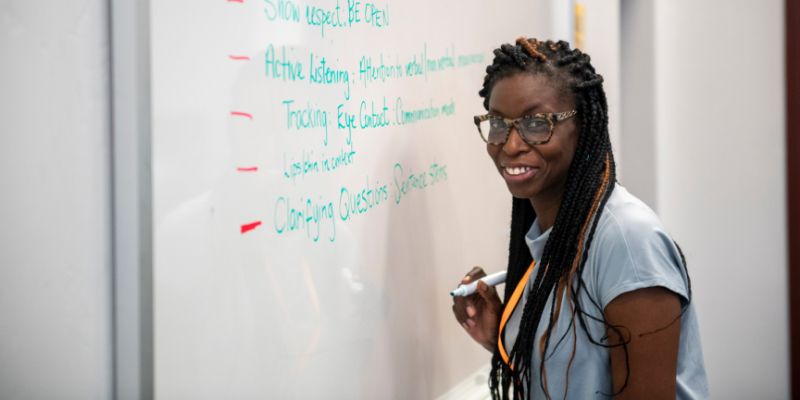 Show respect: BE OPEN
Active Listening: Attention to verbal/non verbal
Tracking: Eye Contact: Communication
Lips/chin in context
Clarifying Questions: Sentence stems